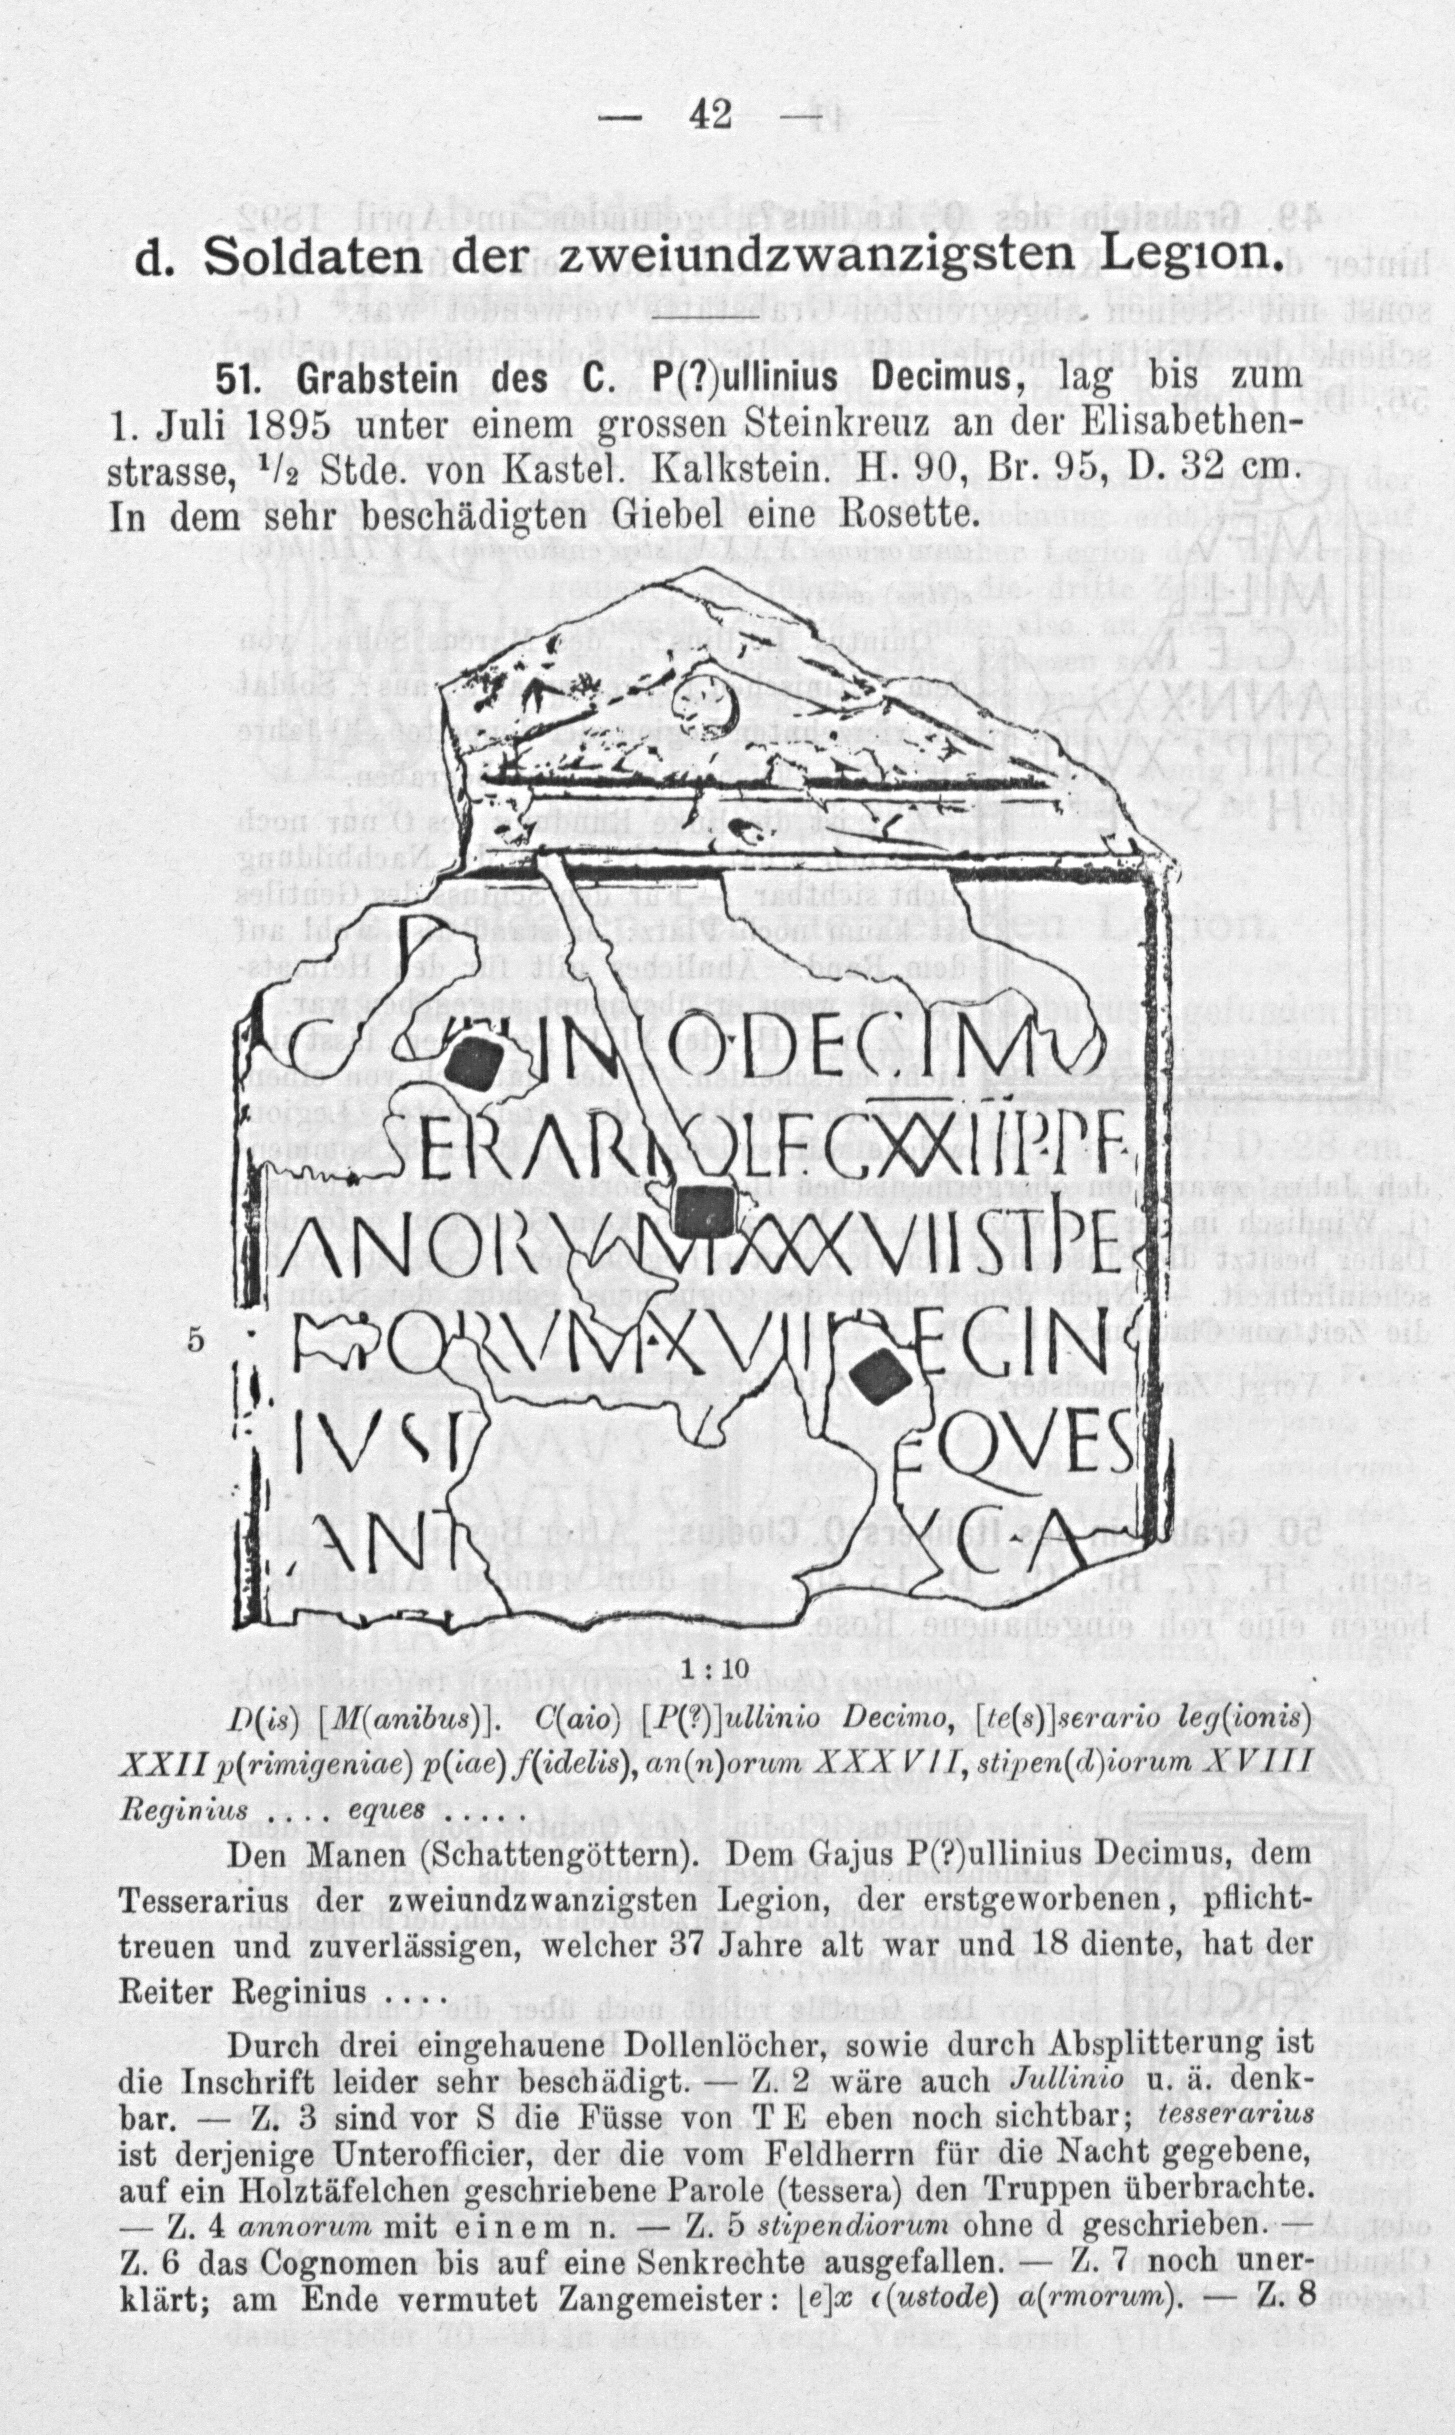 — 42 —
d. Soldaten der zweiundzwanzigsten Legion.
51. Grabstein des C. P(?)ullinius Decimus, lag bis zum
1. Juli 1895 unter einem grossen Steinkreuz an der Elisabethen-
strasse, ½ Stde. von Kastel. Kalkstein. H. 90, Br. 95, D. 32 cm.
In dem sehr beschädigten Giebel eine Rosette.
D
C IN O·DECIMO
SERARIOLEGXXIIP·P·F
ANORVMXXXVIISTIPE
ORVMXVIII REGIN
5
IVS EQVES
ANT XC·A
1 : 10
D(is) [M(anibus)]. C(aio) [P(?)]ullinio Decimo, [te(s)]serario leg(ionis)
XXII p(rimigeniae) p(iae) f(idelis), an(n)orum XXXVII, stipen(d)iorum XVIII
Reginius .... eques .....
Den Manen (Schattengöttern). Dem Gajus P(?)ullinius Decimus, dem
Tesserarius der zweiundzwanzigsten Legion, der erstgeworbenen, pflicht-
treuen und zuverlässigen, welcher 37 Jahre alt war und 18 diente, hat der
Reiter Reginius ....
Durch drei eingehauene Dollenlöcher, sowie durch Absplitterung ist
die Inschrift leider sehr beschädigt. — Z. 2 wäre auch Jullinio u. ä. denk-
bar. — Z. 3 sind vor S die Füsse von T E eben noch sichtbar; tesserarius
ist derjenige Unterofficier, der die vom Feldherrn für die Nacht gegebene,
auf ein Holztäfelchen geschriebene Parole (tessera) den Truppen überbrachte.
— Z. 4 annorum mit einem n. — Z. 5 stipendiorum ohne d geschrieben. —
Z. 6 das Cognomen bis auf eine Senkrechte ausgefallen. — Z. 7 noch uner-
klärt; am Ende vermutet Zangemeister: [e]x c(ustode) a(rmorum). — Z. 8